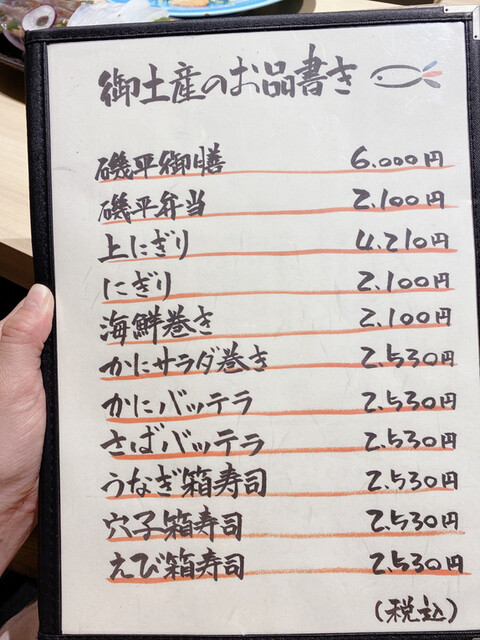 御土産のお品書き
磯平御膳 6.000円
磯平弁当 2.100円
上にぎり 4.210円
にぎり 2.100円
海鮮巻き 2.100円
かにサラダ巻き 2.530円
かにバッテラ 2.530円
さばバッテラ 2.530円
うなぎ箱寿司 2.530円
穴子箱寿司 2.530円
えび箱寿司 2.530円
(税込)